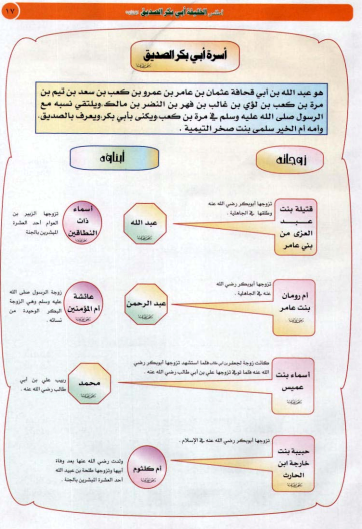 أطلس الخليفة أبي بكر الصديق
١٧
أسرة أبي بكر الصديق
هو عبد الله بن أبي قحافة عثمان بن عامر بن عمرو بن كعب بن سعد بن تيم بن
مرة بن كعب بن لؤي بن غالب بن فهر بن النضر بن مالك. ويلتقي نسبه مع
الرسول صلى الله عليه وسلم في مرة بن كعب ويكنى بأبي بكر، ويعرف بالصديق،
وأمه أم الخير سلمى بنت صخر التيمية .
زوجاته
أبناؤه
قتيلة بنت
عبد
العزى من
بني عامر
تزوجها أبوبكر رضي الله عنه
وطلقها في الجاهلية .
عبد الله
أسماء
ذات
النطاقين
تزوجها الزبير بن
العوام أحد العشرة
المبشرين بالجنة
أم رومان
بنت عامر
تزوجها أبوبكر رضي الله
عنه في الجاهلية .
عبد الرحمن
عائشة
أم المؤمنين
زوجة الرسول صلى الله
عليه وسلم وهي الزوجة
البكر الوحيدة من
نسائه .
أسماء بنت
عميس
كانت زوجة لجعفر بن أبي طالب فلما استشهد تزوجها أبوبكر رضي
الله عنه فلما توفي تزوجها علي بن أبي طالب رضي الله عنه .
محمد
ربيب علي بن أبي
طالب رضي الله عنه .
حبيبة بنت
خارجة ابن
الحارث
تزوجها أبوبكر رضي الله عنه في الإسلام .
أم كلثوم
ولدت رضي الله عنها بعد وفاة
أبيها وتزوجها طلحة بن عبيد الله
أحد العشرة المبشرين بالجنة .